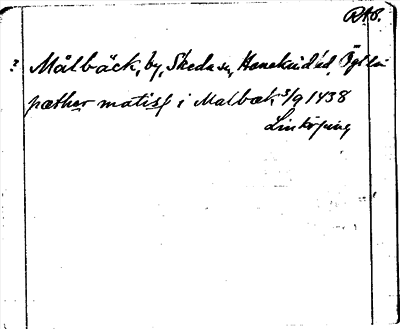 RAP.
? Målbäck, by, Skeda sn, Hanekinds hd, Ög län
pæther matiss i Malbæk 3/9 1438
Linköping